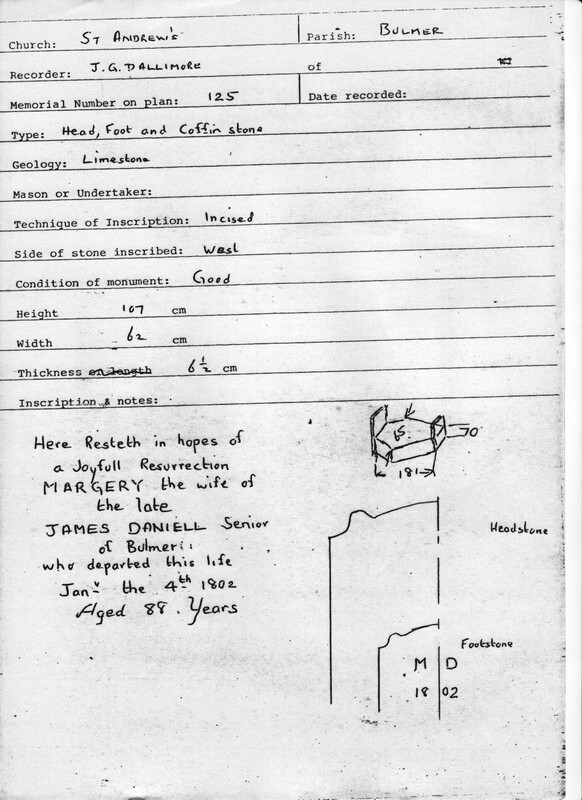 Church: ST ANDREW'S Parish: BULMER
Recorder: J.G. DALLIMORE of
Memorial Number on plan: 125 Date recorded:
Type: Head, Foot and Coffin stone
Geology: Limestone
Mason or Undertaker:
Technique of Inscription: Incised
Side of stone inscribed: West
Condition of monument: Good
Height 107 cm
Width 62 cm
Thickness or length 6 1/2 cm
Inscription & notes:
Here Resteth in hopes of
a Joyfull Resurrection
MARGERY the wife of
the late
JAMES DANIELL Senior
of Bulmer
who departed this life
Jany the 4th 1802
Aged 88. Years
65
181
Headstone
Footstone
M D
18 02